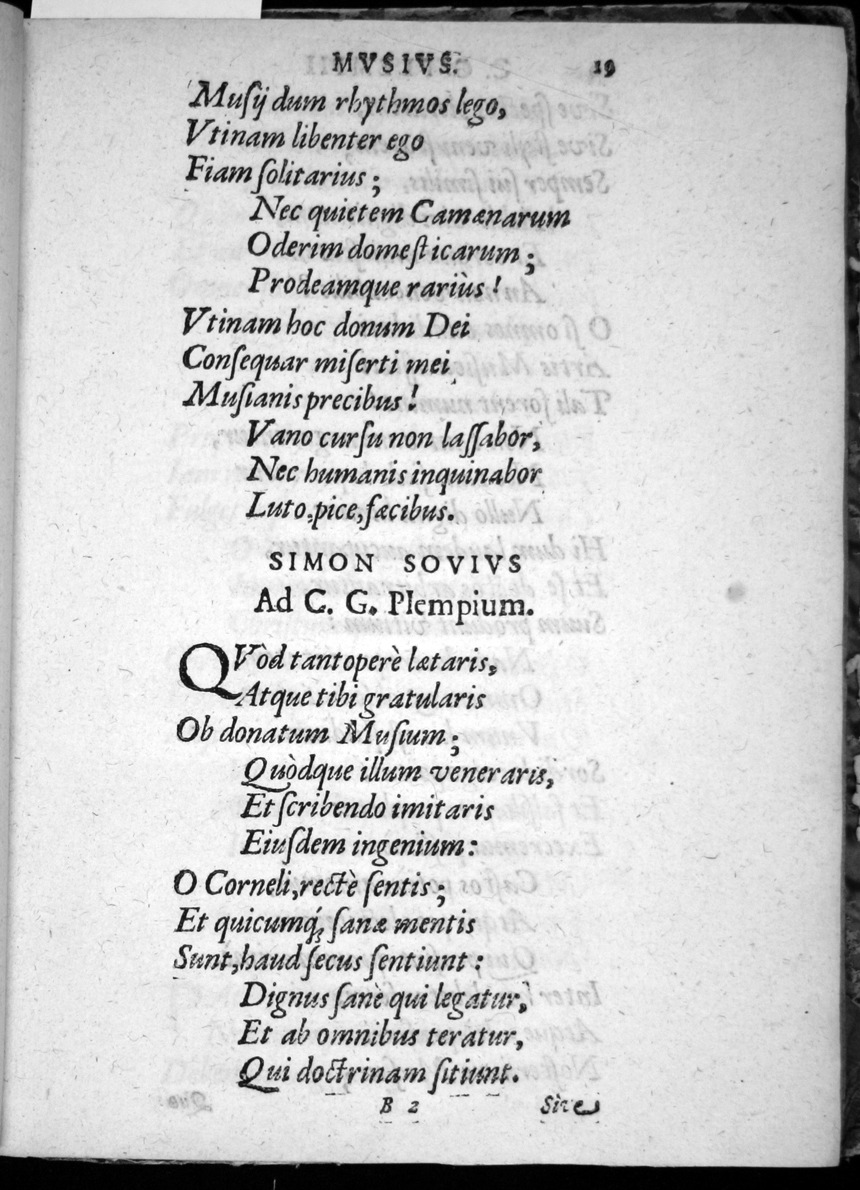 MVSIVS. 19
Muſij dum rhythmos lego,
Vtinam libenter ego
Fiam ſolitarius;
Nec quietem Camænarum
Oderim domeſticarum;
Prodeamque rariùs!
Vtinam hoc donum Dei
Conſequar miſerti mei
Muſianis precibus!
Vano curſu non laſſabor,
Nec humanis inquinabor
Luto, pice, fæcibus.
SIMON SOVIVS
Ad C. G. Plempium.
QVòd tantoperè lætaris,
Atque tibi gratularis
Ob donatum Muſium;
Quòdque illum veneraris,
Et ſcribendo imitaris
Eiuſdem ingenium:
O Corneli, rectè ſentis;
Et quicumq́ꝫ ſanæ mentis
Sunt, haud ſecus ſentiunt:
Dignus ſanè qui legatur,
Et ab omnibus teratur,
Qui doctrinam ſitiunt.
B 2 Sive